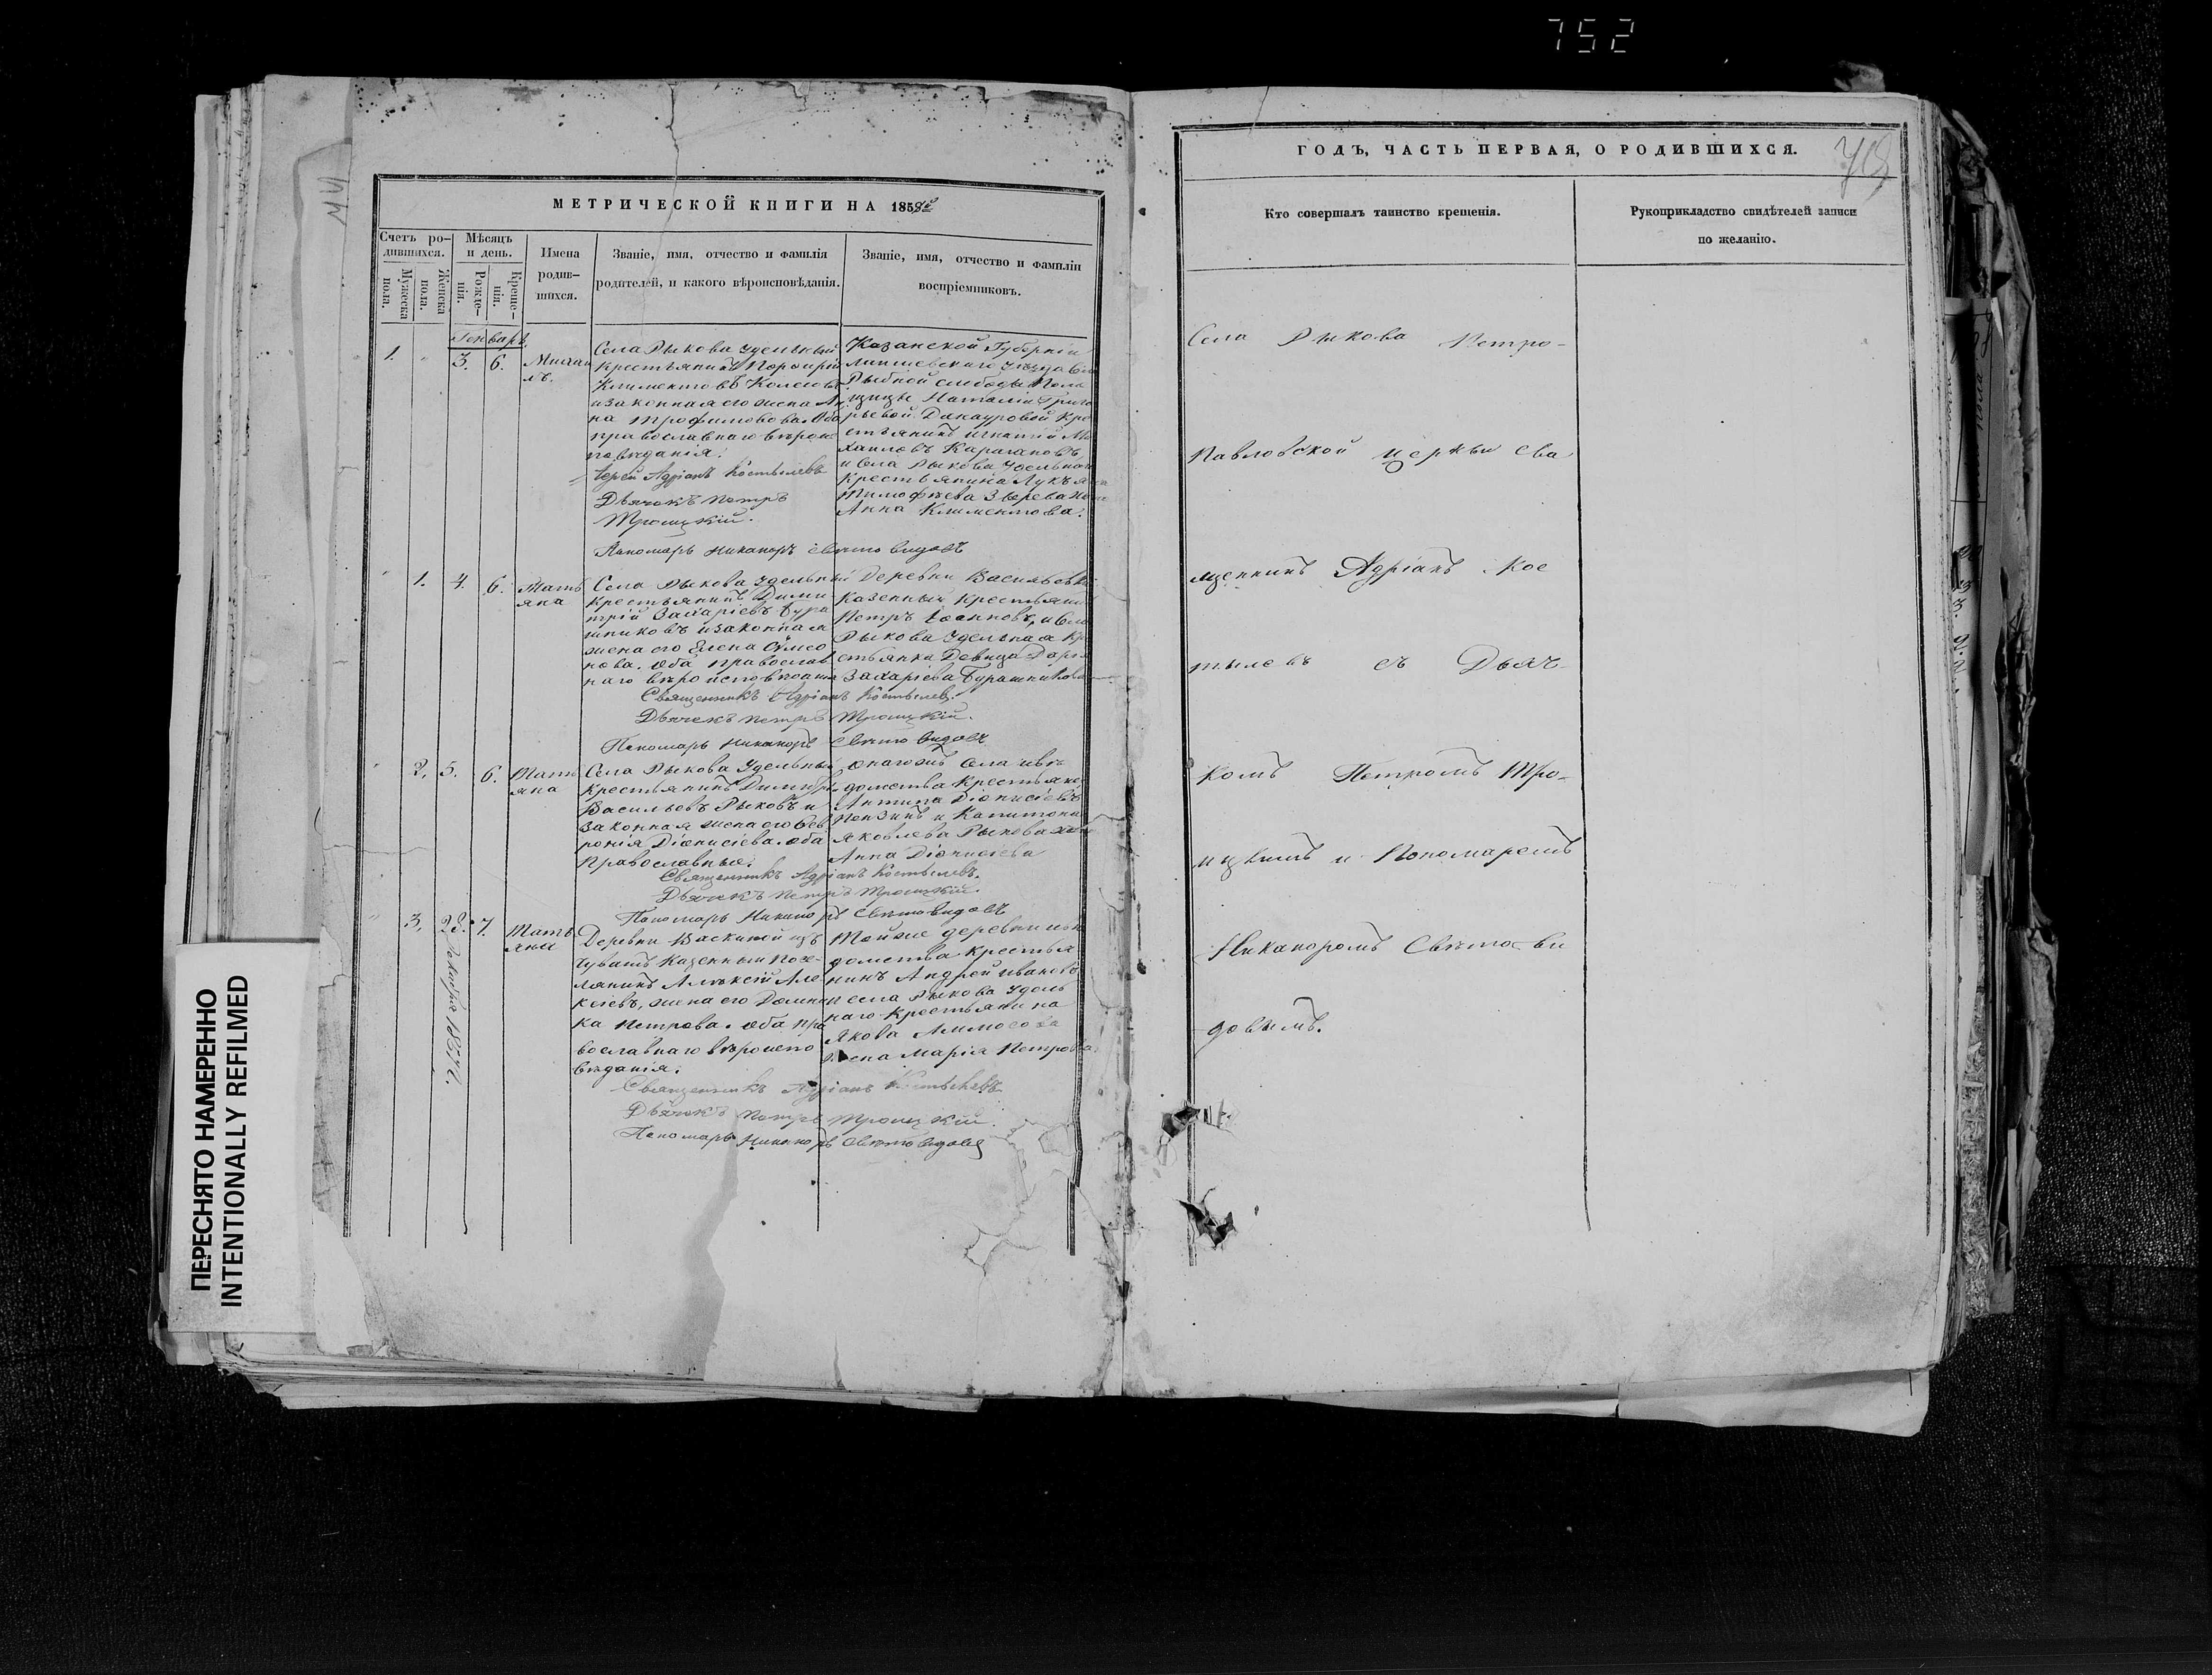 752
МЕТРИЧЕСКОЙ КНИГИ НА 1858й
Счетъ ро-
дившихся.
Мужеска
пола.
Женска
пола.
Мѣсяцъ
и день.
Рожде-
нія.
Креще-
нія.
Имена
родив-
шихся.
Званіе, имя, отчество и фамилія
родителей, и какого вѣроисповѣданія.
Званіе, имя, отчество и фамиліи
воспріемниковъ.
Генварь
1. 3. 6. Михаи
лъ.
Села Рыкова Удельный
Крестьянинъ Порфирій
Климентовъ
изаконная его жена Ан
на Трофимова оба
православнаго вѣроис
повѣданія.
Іерей Адріанъ Костылевъ
Дьячокъ Петръ
Троицкій.
Пономарь Никаноръ Свѣтовидовъ
Казанской Губерніи
Рыбной слободы
Наталіи Григо
рьевой Кре
стьянинъ Игнатій Ми
хаиловъ
и села Рыкова Удельнаго
Крестьянина Лукьяна
Тимофѣева Зверева жена
Анна Климентова.
1. 4. 6. Тать
яна
Села Рыкова Удельный
Крестьянинъ Дими
трій Захаріевъ Бура
шниковъ изаконная
жена его Елена Симео
нова. Оба православ
наго вѣроисповѣданія
Священникъ Адріанъ Костылевъ.
Дьячекъ Петръ Троицкій.
Пономарь Никаноръ Свѣтовидовъ
Деревни Васильевки
Казенный Крестьянинъ
Петръ Іоанновъ, и села
Рыкова Удельная Кре
стьянка Девица Дарья
Захаріева Бурашникова
2. 5. 6. Тать
яна
Села Рыкова Удельный
Крестьянинъ Димитрій
Васильевъ Рыковъ и
законная жена его Фев
ронія Діонисіева. оба
Православные.
Священникъ Адріанъ Костылевъ.
Дьячекъ Петръ Троицкій.
Пономарь Никаноръ Свѣтовидовъ
онагожъ села и вѣ
домства Крестьяне
Антипа Діонисіевъ
и Капитона
Яковлева Рыкова жена
Анна Діонисіева
3. 28. 7. Тать
яна
Декабря 1857 г.
Деревни изъ
Чувашъ Казенный Посе
лянинъ Алексій Але
ксіевъ, жена его Домни
ка Петрова. оба пра
вославнаго вѣроиспо
вѣданія.
Священникъ Адріанъ Костылевъ
Дьячокъ Петръ Троицкій.
Пономарь Никаноръ Свѣтовидовъ
Тойже деревни и вѣ
домства Крестья
нинъ Андрей Ивановъ
и села Рыкова Удель
наго Крестьянина
Якова
жена Марія Петрова
ГОДЪ, ЧАСТЬ ПЕРВАЯ, О РОДИВШИХСЯ.
Кто совершалъ таинство крещенія.
Рукоприкладство свидѣтелей записи
по желанію.
Села Рыкова Петро-
Павловской церкви Свя
щенникъ Адріанъ Кос
тылевъ съ Дьяч-
комъ Петромъ Тро-
ицкимъ и Пономаремъ
Никаноромъ Свѣтови
довымъ.
ПЕРЕСНЯТО НАМЕРЕННО
INTENTIONALLY REFILMED